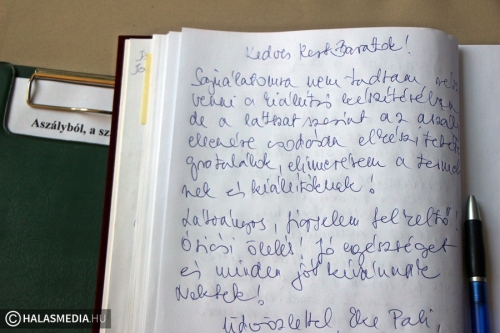 Aszályból, a sz
Kedves KertBarátok!
Sajnálatomra nem tudtam részt
venni a kiállítás készítésében
de a látszat szerint az aszály
ellenére csodásan elkészítetek
gratulálok, elismerésem a termel
nek és kiállítóknak!
Látványos, figyelem felkeltő!
Óriási ölelés! Jó egészséget
és minden jót kívánunk
Nektek!
Üdvözlettel Pali,
HALASMEDIA.HU